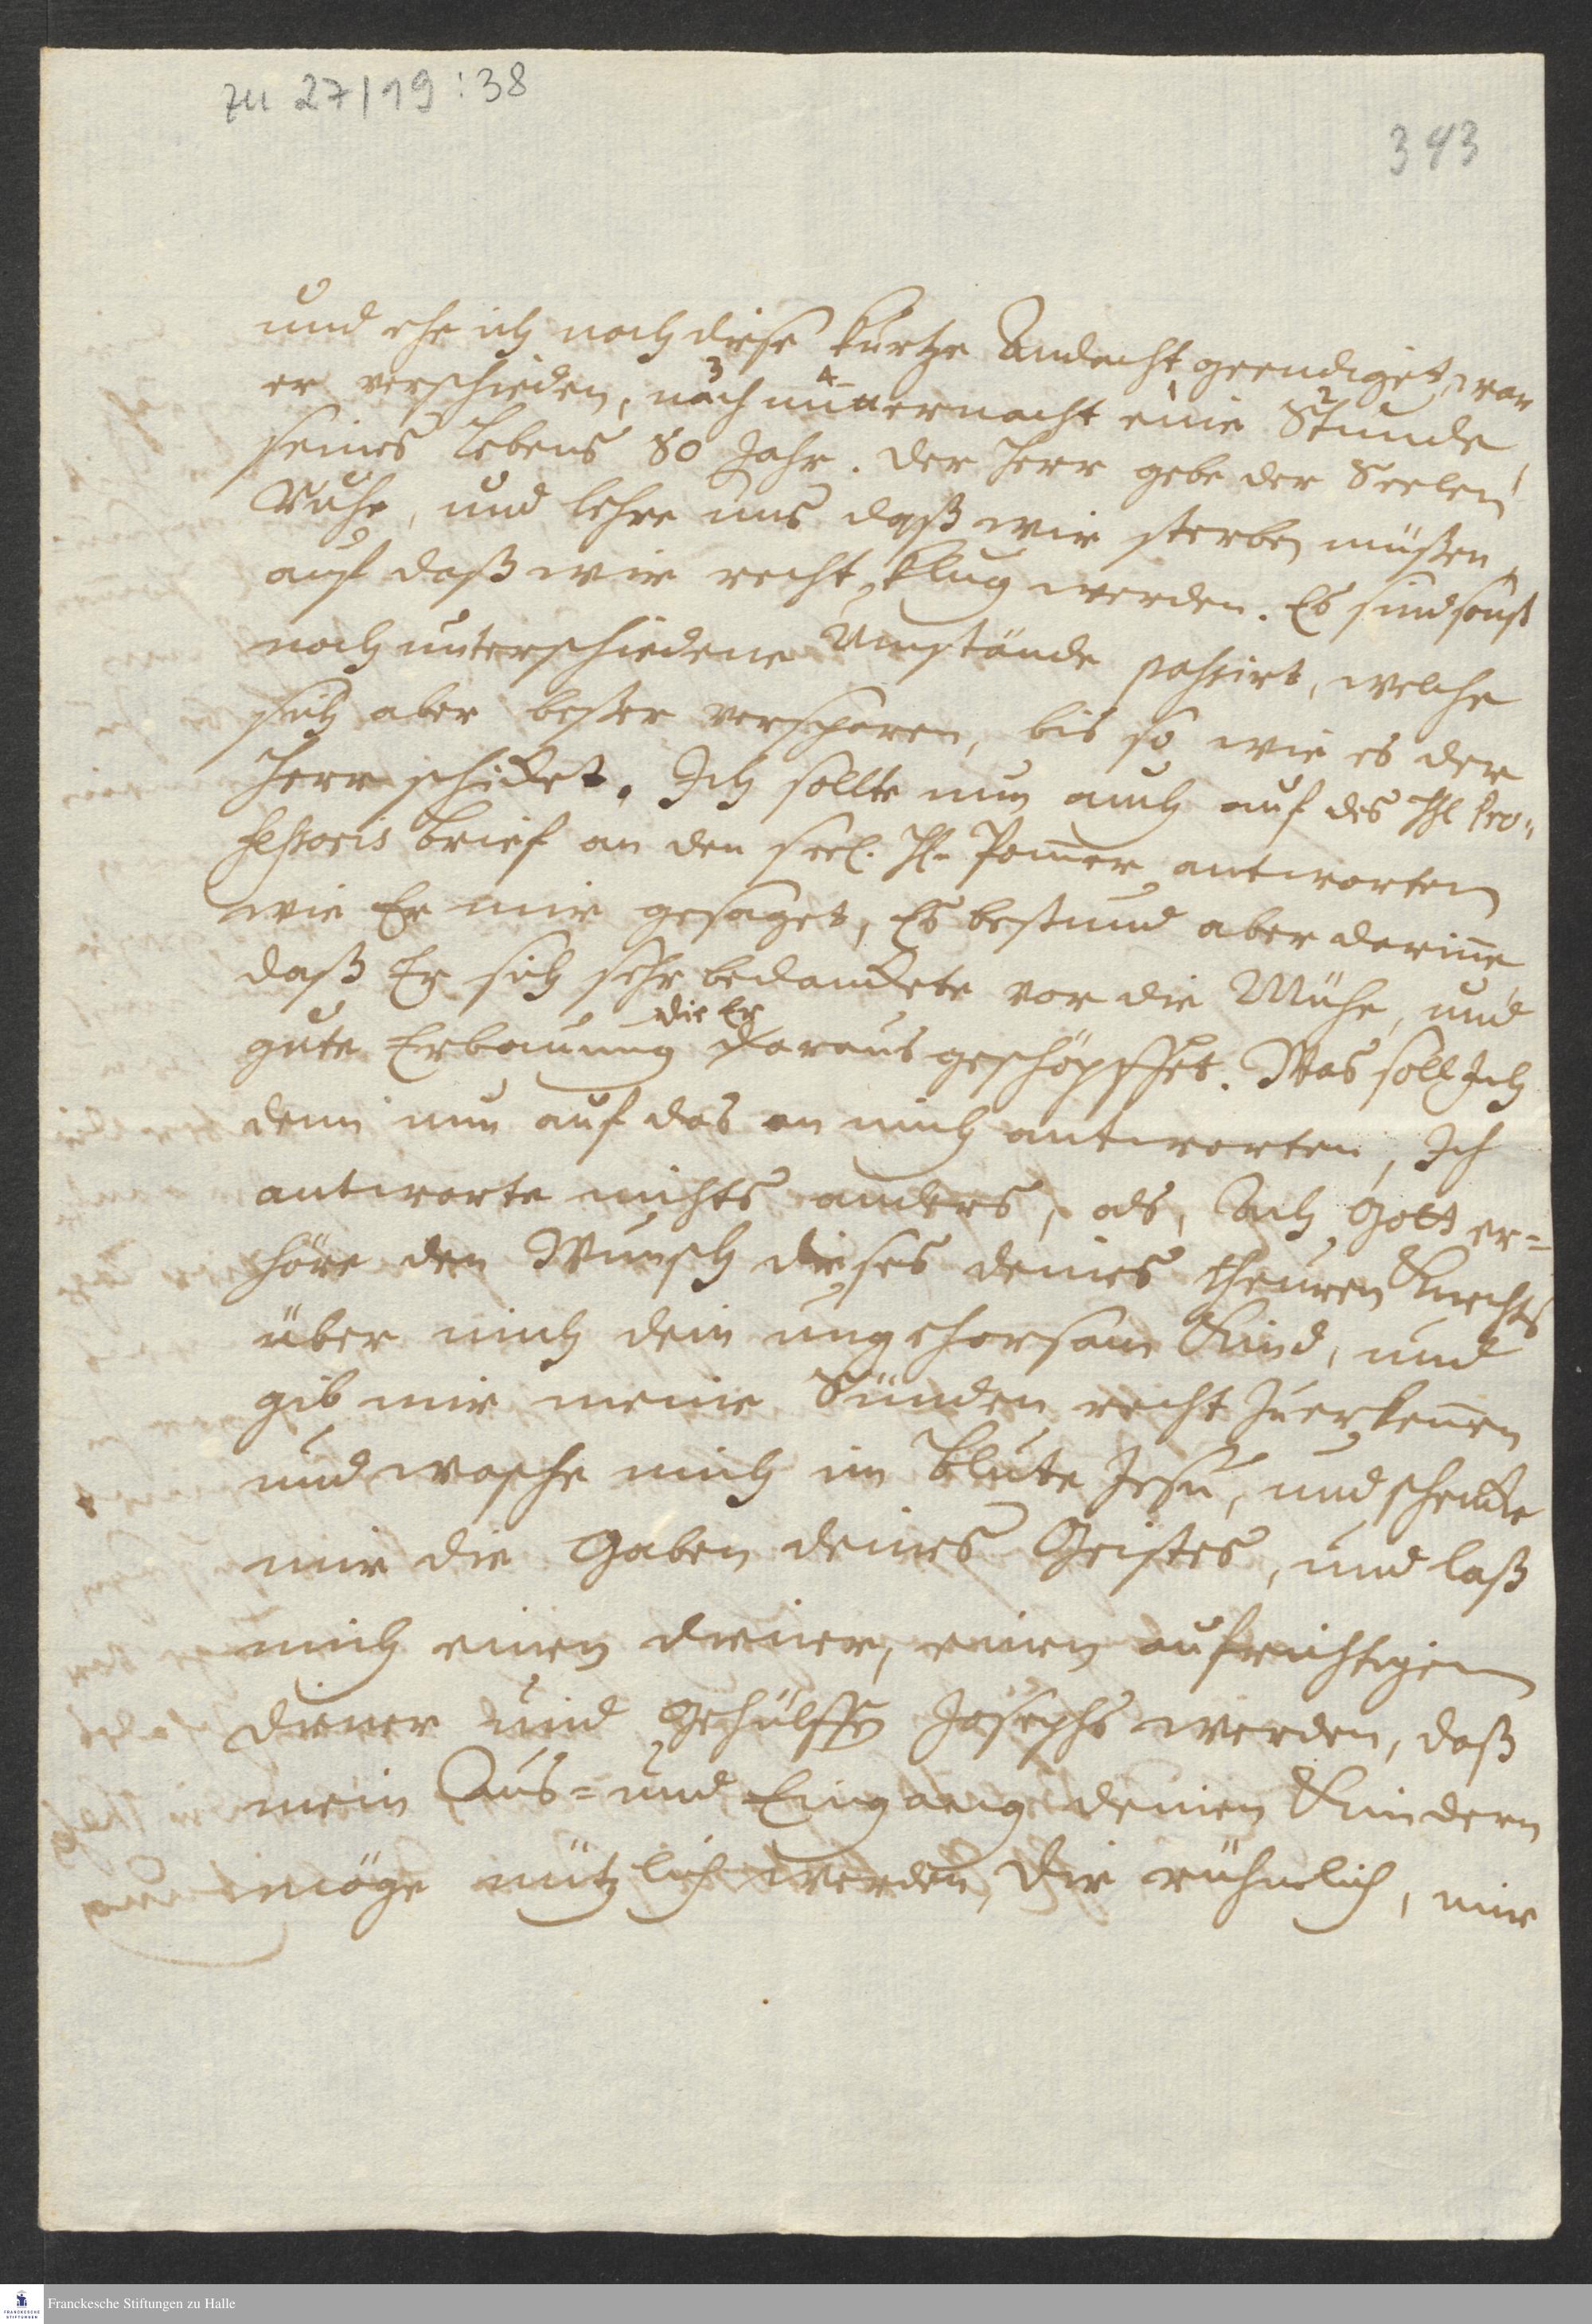 zu 27/19:38
343
und ehe ich noch diese kurtze Andacht geendiget, war
3 4 1 2
er verschieden, nach mitternacht eine Stunde,
seines Lebens 80 Jahr. der Herr gebe der Seelen
Ruhe, und lehre uns daß wir sterben müßen,
auf daß wir recht klug werden. Es sind sonst
noch unterschiedene Umstände passirt, welche
sich aber beßer versparen, bis so wie es der
Herr schicket. Ich sollte nun auch auf des Hl Pro-
fessoris Brief an den seel. Hl. Pomer antworten
wie Er mir gesaget, Es bestund aber darinne
daß Er sich sehr bedanckete vor die Mühe, und
die Er
gute Erbauung daraus geschöpffet. Was soll Ich
denn nun auf das an mich antworten, Ich
antworte nichts anders, als, Ach Gott er=
höre den Wunsch dieses deines theuren Knechts
über mich dein ungehorsam Kind, und
gib mir meine Sünden recht zu erkennen
und wasche mich im Blute Jesu, und schencke
mir die Gaben deines Geistes, und laß
mich einen deiner, einen aufrichtigen
diener und Gehülffen Josephs werden, daß
mein Aus= und Eingang deinen Kindern
möge nützlich werden, dir rühmlich, mir
Franckesche Stiftungen zu Halle
FRANCKESCHE
STIFTUNGEN